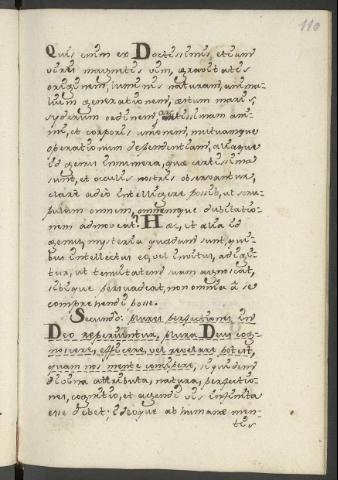 110
Quis enim ex Doctissimis, etiam
vires magnetis vim, gravitatis
originem, luminis naturam, anima-
lium generationem, æstum maris,
syderum ordinem, arctissimam ani-
mi, et corporis unionem, mutuamque
operationum dependentiam, aliaque
id genus innumera, quæ certissima
sunt, et oculis nostris observantur,
clarè adeò intelligere possit, ut scru-
pulum omnem, omnemque dubitatio-
nem admoveat? Hæc, et alia id
genus, mysteria quædam sunt, qui-
bus intellectus vel invitus, adigi-
tur, ut tenuitatem suam agnoscat,
sibique persuadeat, non omnia à se
comprehendi posse.
Secundò: plures perfectiones in
Deo reperiuntur, plura Deus cog-
noscere, efficere, vel revelare potest,
quam nos mente concipere, siquidem
Divina attributa, natura, perfectio-
nes, cognitio, et agendi vis infinita
esse debet; ideoque ab humanæ men-
tis